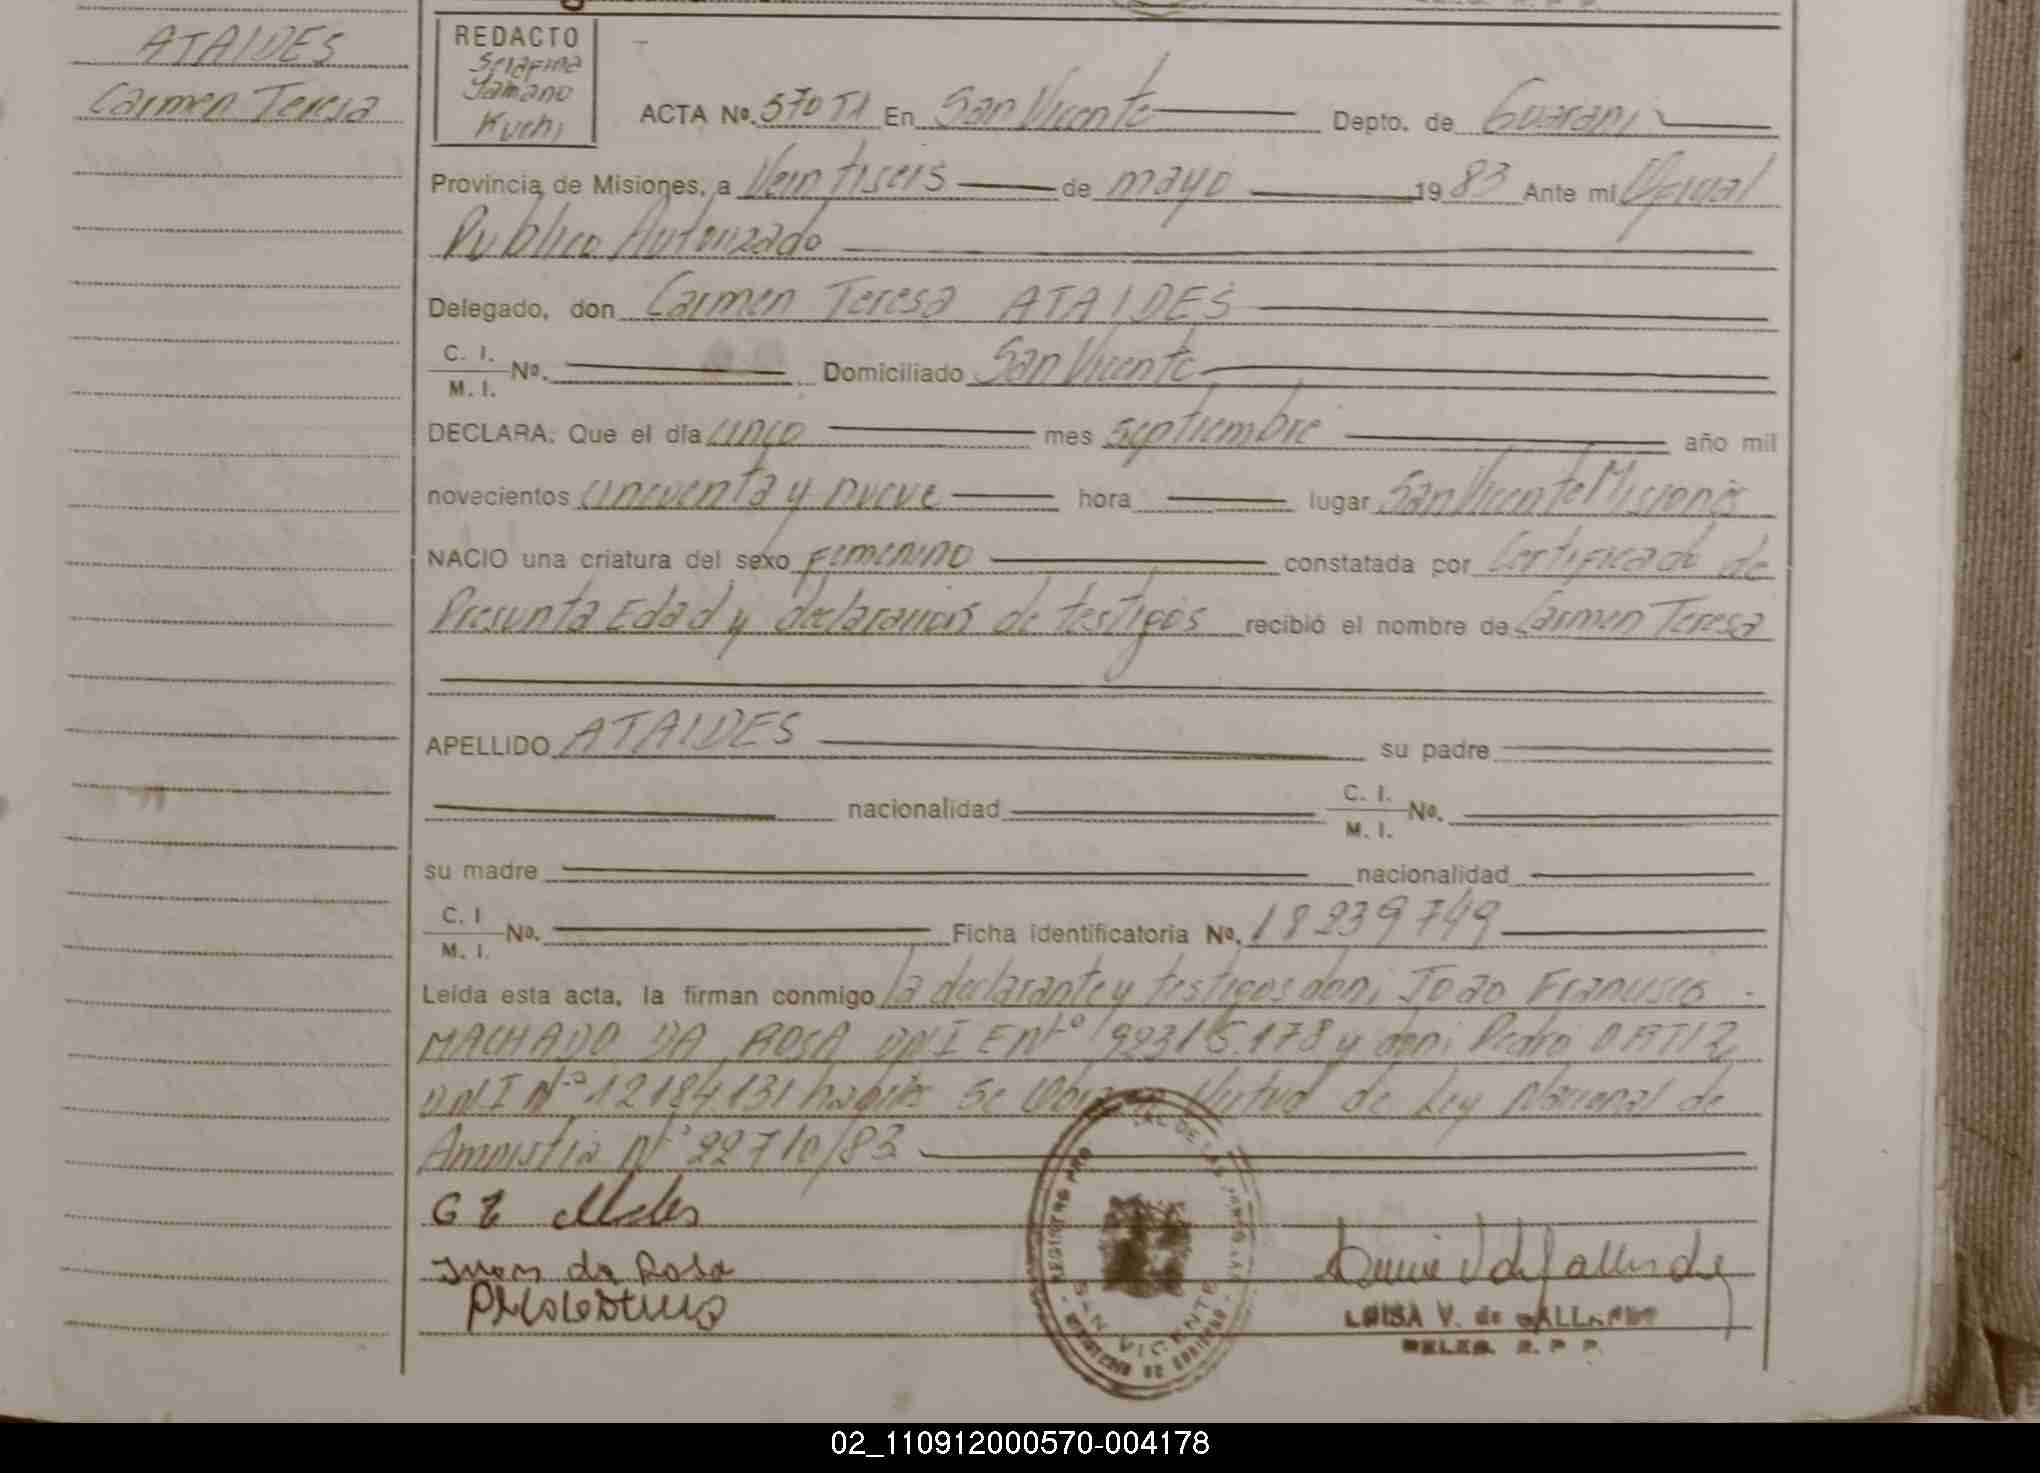 ATAIDES
Carmen Teresa
REDACTO
Serafina
Yamano
Kuchi
ACTA No. 570 T1 En San Vicente Depto. de Guarani
Provincia de Misiones, a Veintiseis de mayo 1983 Ante mi Oficial
Publico Autorizado
Delegado, don Carmen Teresa ATAIDES
C. I. / M. I. No. Domiciliado San Vicente
DECLARA: Que el día cinco mes septiembre año mil
novecientos cincuenta y nueve hora lugar San Vicente Misiones
NACIO una criatura del sexo femenino constatada por Certificado de
Presunta Edad y declaracion de testigos recibió el nombre de Carmen Teresa
APELLIDO ATAIDES su padre
nacionalidad C. I. / M. I. No.
su madre nacionalidad
C. I / M. I. No. Ficha identificatoria No. 18239749
Leída esta acta, la firman conmigo la declarante y testigos don: Joao Francisco
MACHADO DA ROSA DNI E Nº 92315.178 y don: Pedro ORTIZ
DNI Nº 12184131 habiles se Virtud de Ley Nacional de
Amnistia Nº 22710/83
da Rosa
REGISTRO PRO DE LAS PERSONAS
SAN VICENTE
LUISA V. de GALLARDO
DELEG. R. P. P.
02_110912000570-004178